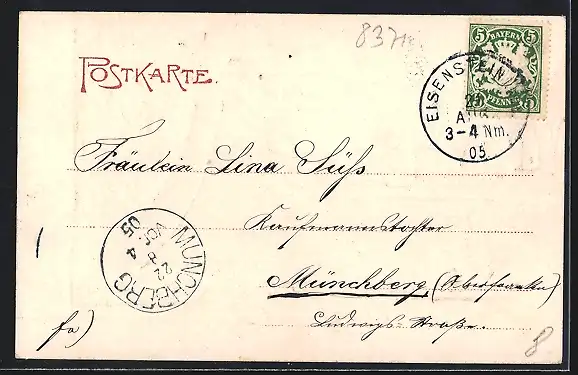 8371
POSTKARTE.
5 BAYERN 5
5 PFENNIG 5
EISENSTEIN
3-4 Nm.
05
Fräulein Lina Süß
Kaufmannstochter
Münchberg (Oberfranken)
Ludwigs-Straße.
MÜNCHBERG
22
8
4
Vor.
05
fr)
8